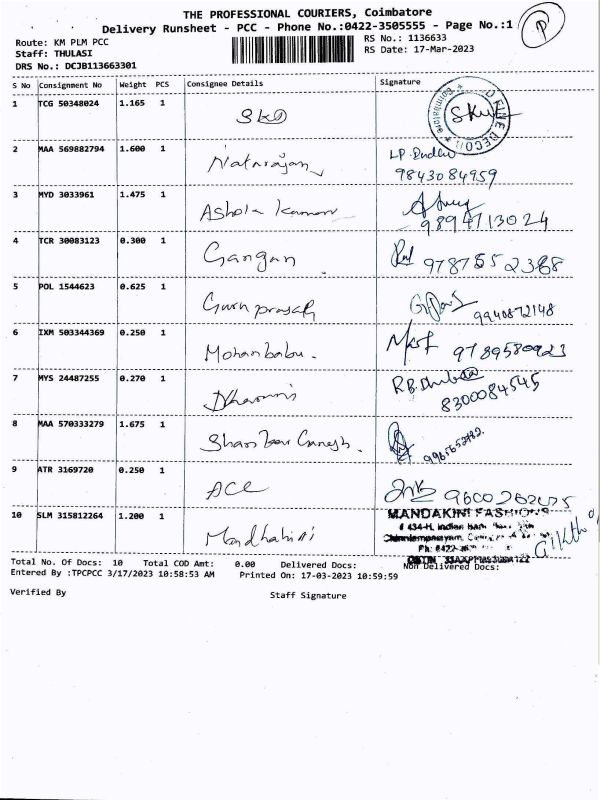 THE PROFESSIONAL COURIERS, Coimbatore
Delivery Runsheet - PCC - Phone No.:0422-3505555 - Page No.:1
Route: KM PLM PCC
Staff: THULASI
DRS No.: DCJB113663301
RS No.: 1136633
RS Date: 17-Mar-2023
S No Consignment No Weight PCS Consignee Details Signature
1 TCG 50348024 1.165 1 SKD
2 MAA 569882794 1.600 1 Natarajan
9843084959
3 MYD 3033961 1.475 1 Ashok Kumar
9894713024
4 TCR 30083123 0.300 1 Gangan
9787552368
5 POL 1544623 0.625 1 Guru prasath
9940872148
6 IXM 503344369 0.250 1 Mohanbabu.
9789580923
7 MYS 24487255 0.270 1
8300084545
8 MAA 570333279 1.675 1
9 ATR 3169720 0.250 1 ACE
10 SLM 315812264 1.200 1
MANDAKINI FASHIONS
Total No. Of Docs: 10 Total COD Amt: 0.00 Delivered Docs: Non Delivered Docs:
Entered By :TPCPCC 3/17/2023 10:58:53 AM Printed On: 17-03-2023 10:59:59
Verified By Staff Signature